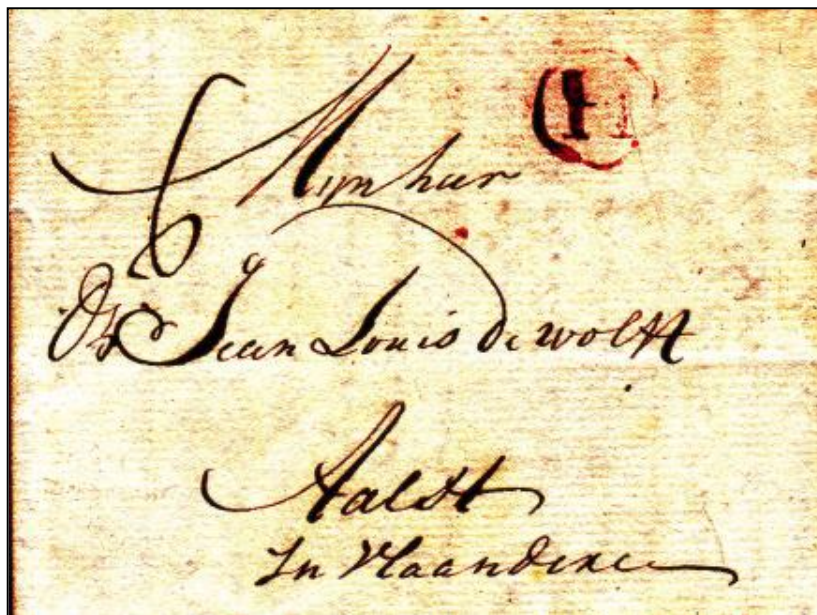 H
Mynheer
Jean Louis de wolff
Aalst
In Vlaanderen